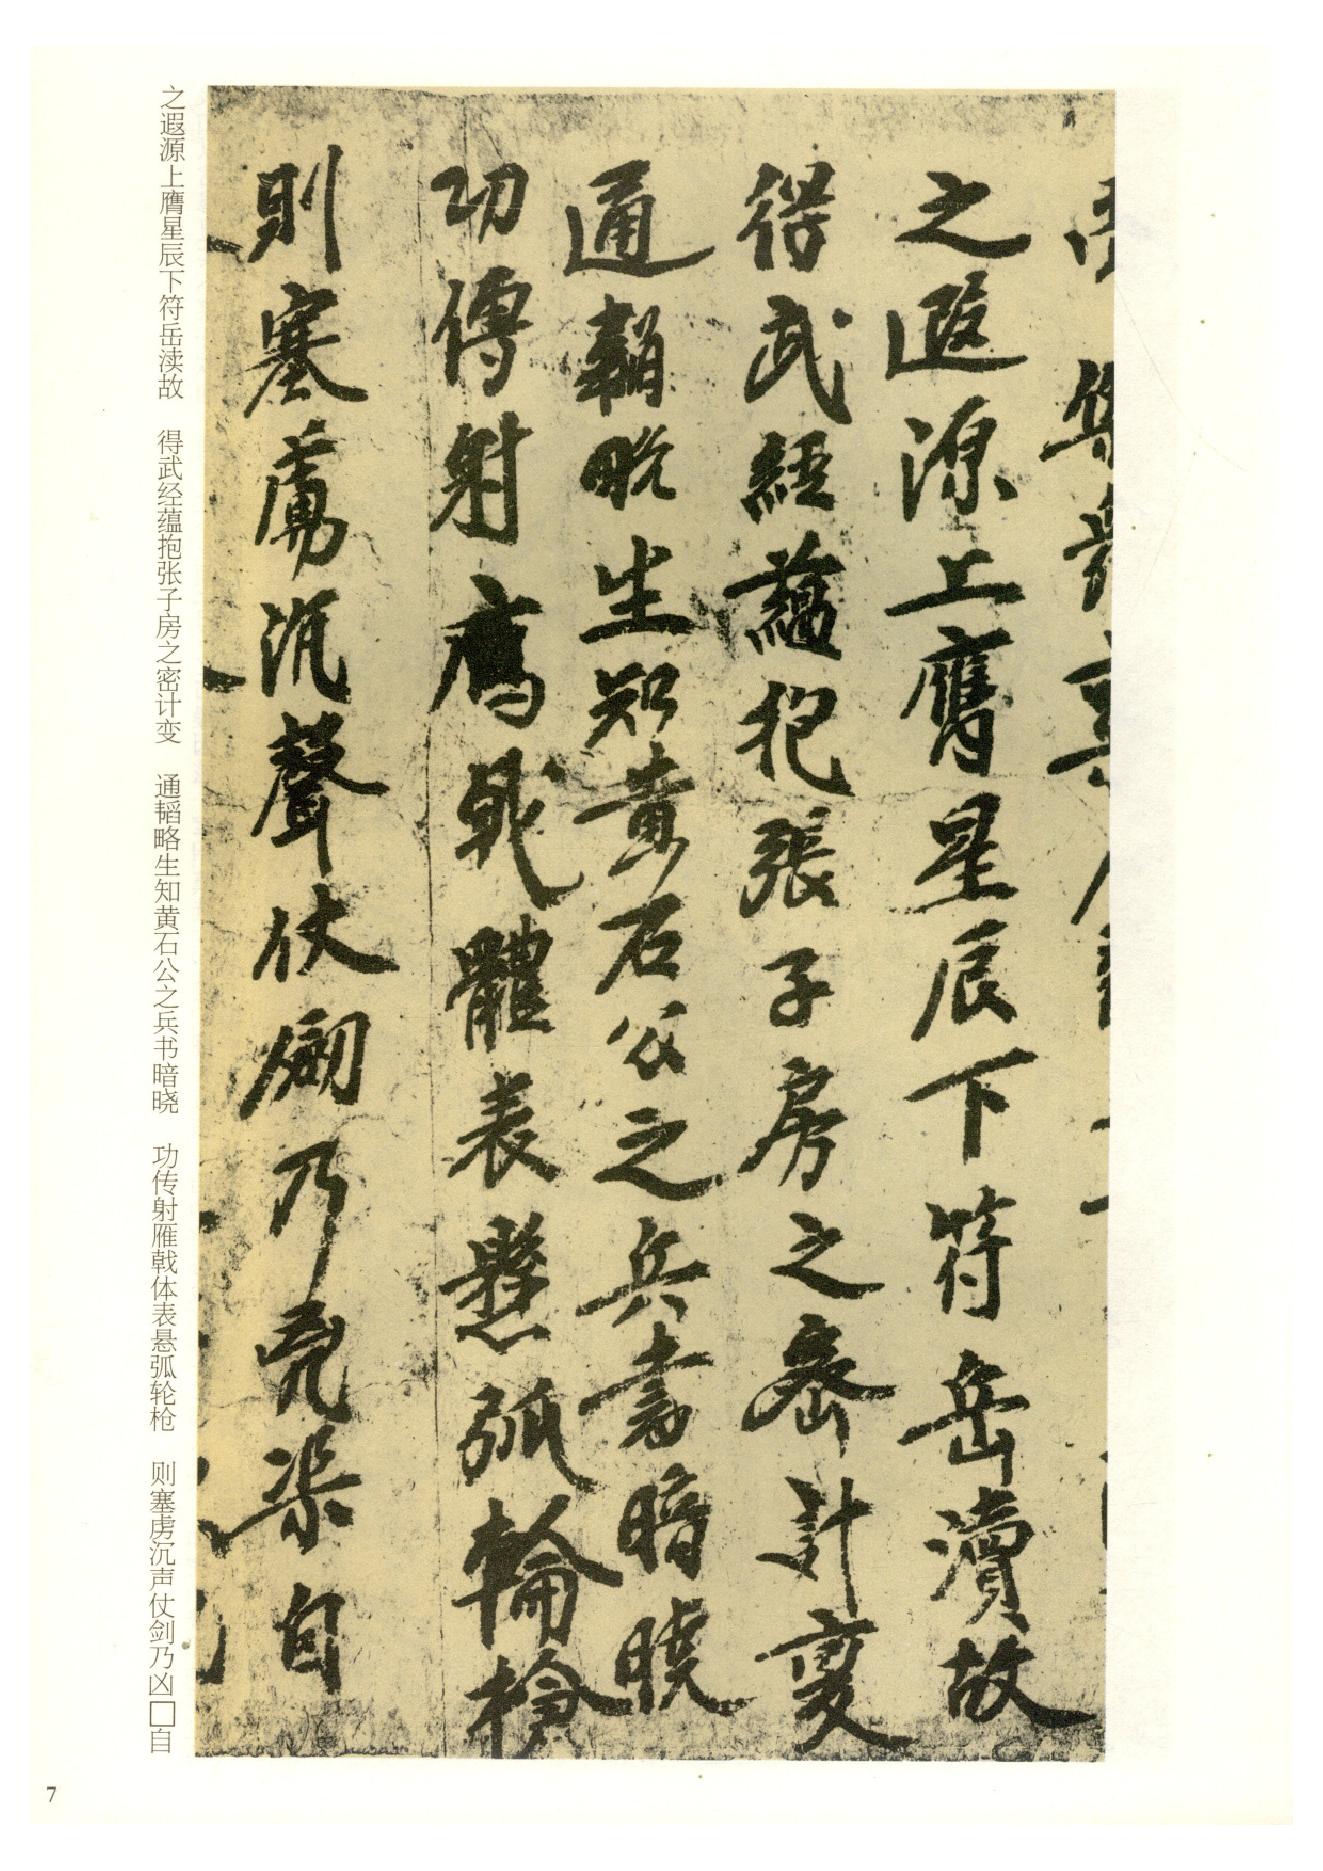 之遐源上膺星辰下符岳瀆故
得武經蘊抱張子房之密計變
通韜略生知黃石公之兵書暗曉
功傳射鴈戟體表懸弧輪槍
則塞虜沉聲仗劒乃兇渠自
之遐源上膺星辰下符岳渎故 得武经蕴抱张子房之密计变 通韬略生知黄石公之兵书暗晓 功传射雁戟体表悬弧轮枪 则塞虏沉声仗剑乃凶□自
7